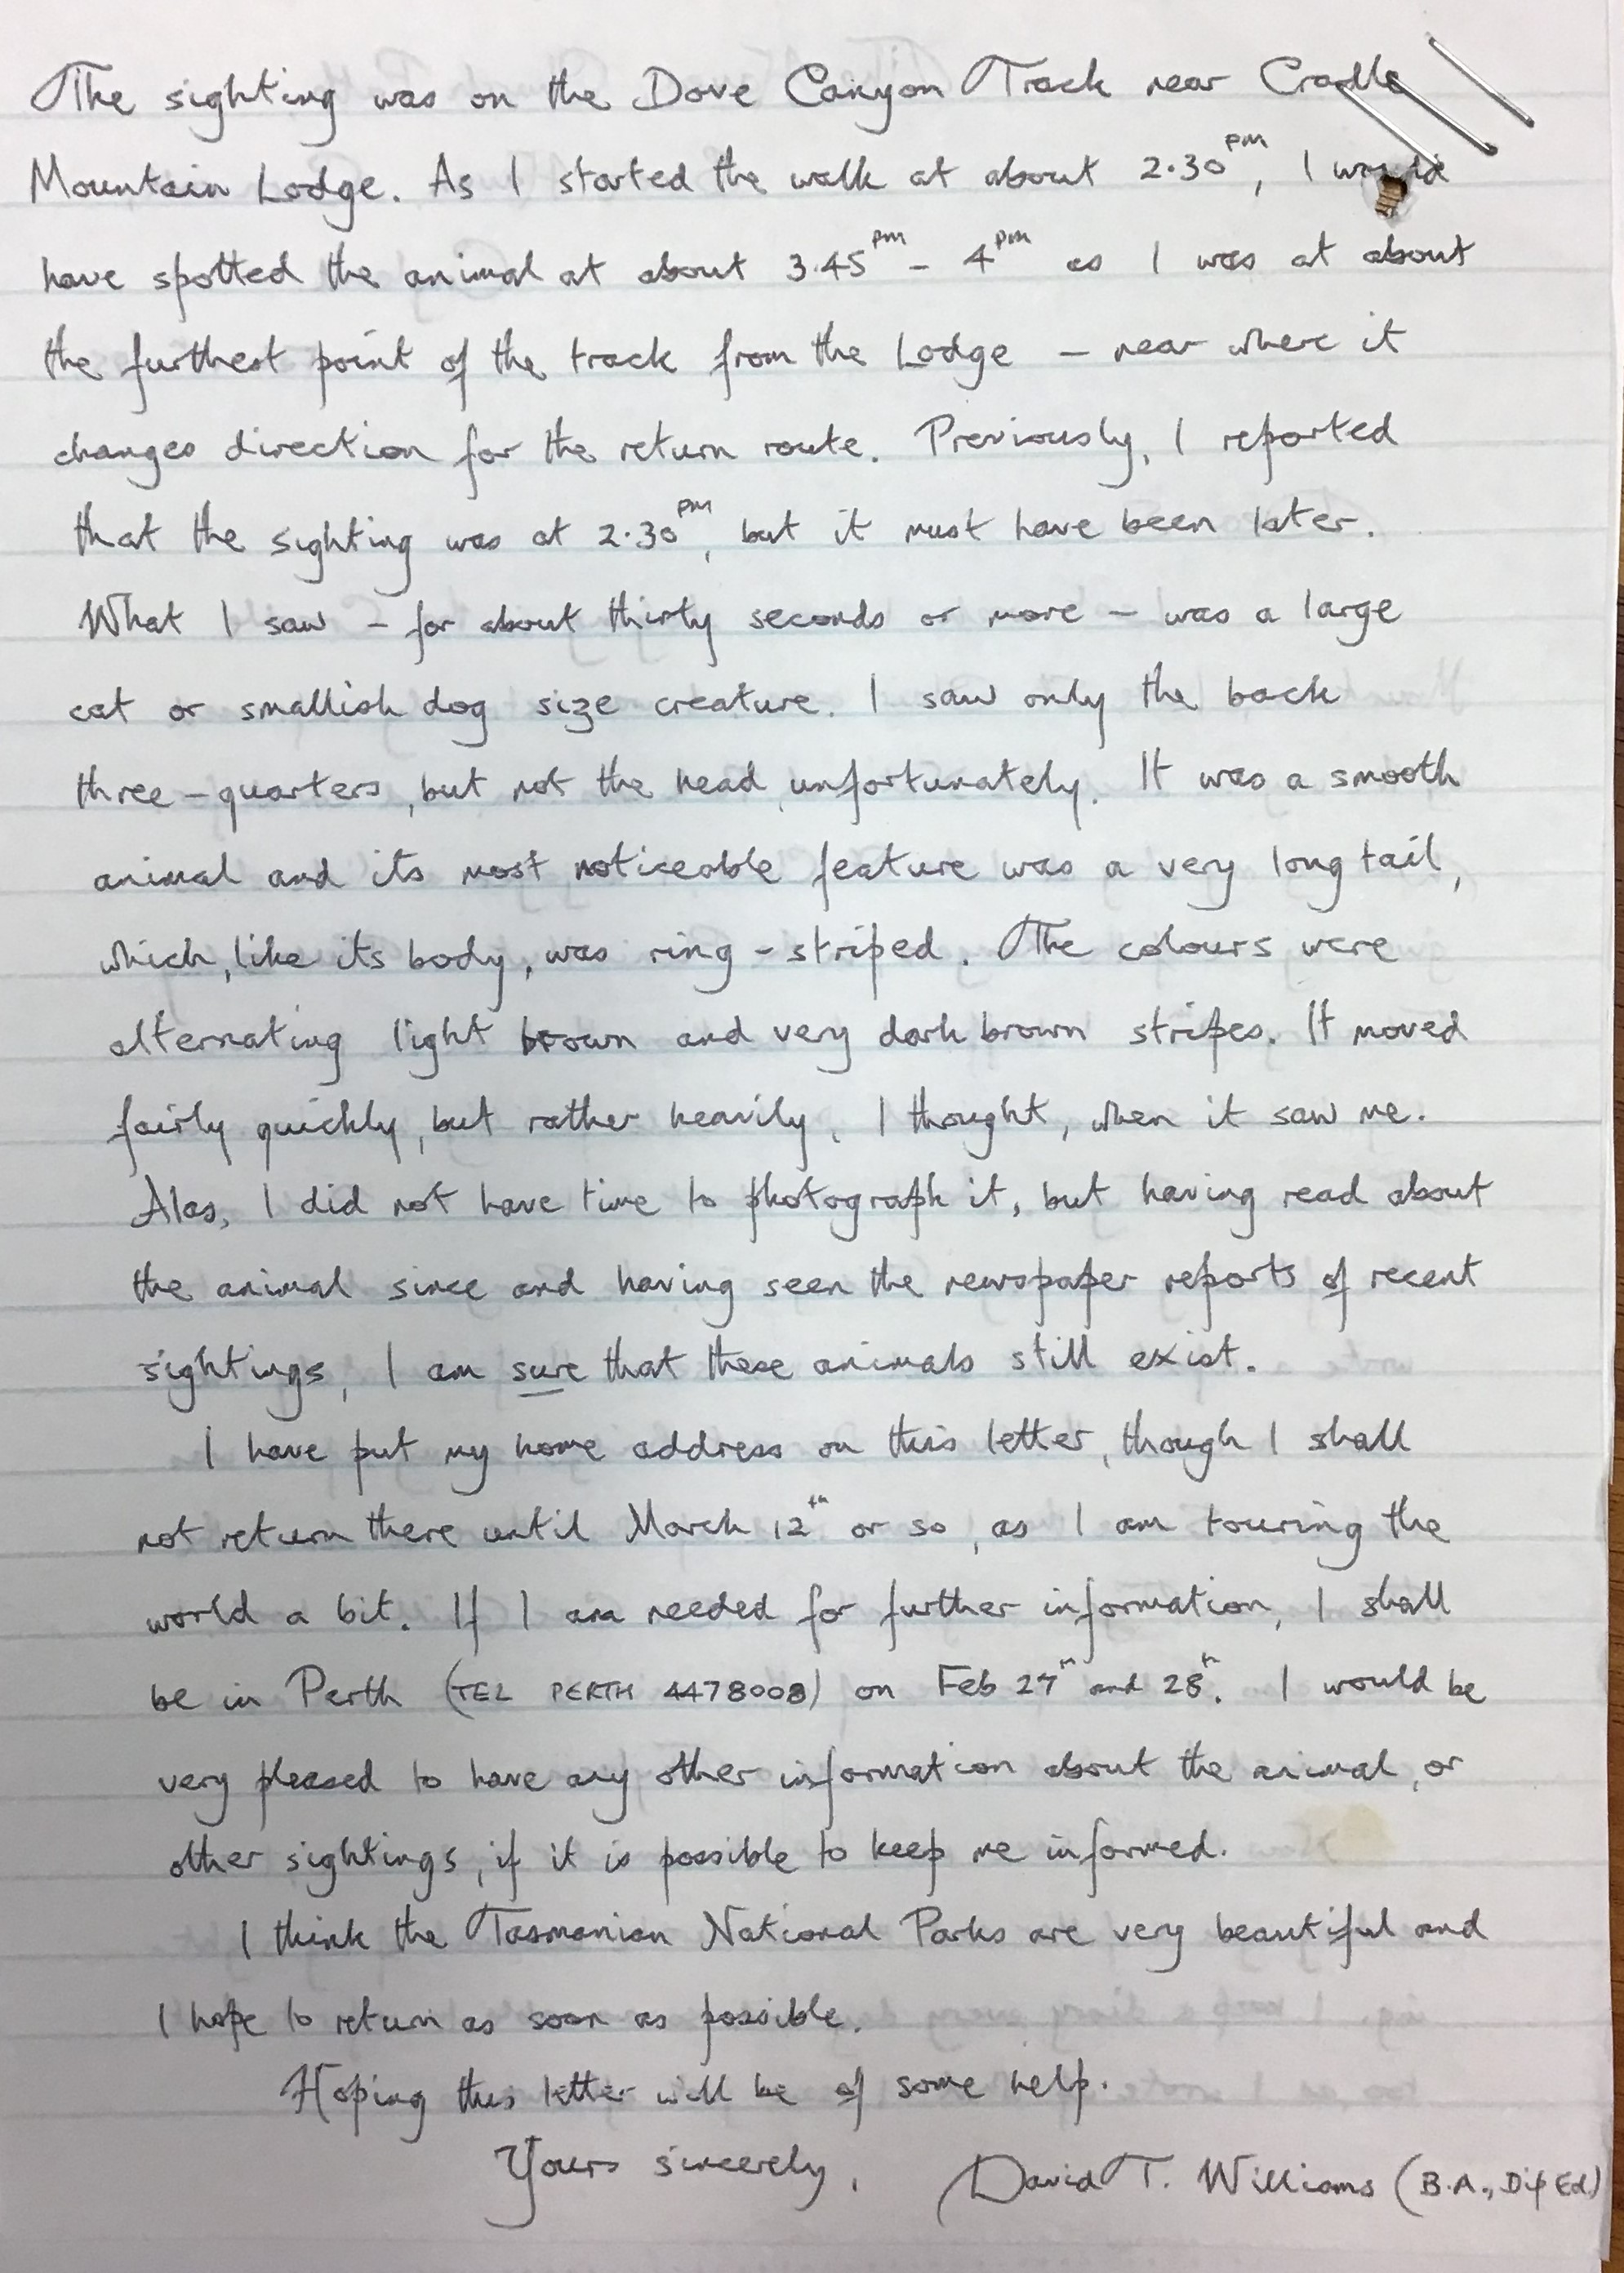 The sighting was on the Dove Canyon Track near Cradle
Mountain Lodge. As I started the walk at about 2.30pm, I would
have spotted the animal at about 3.45pm - 4pm as I was at about
the furthest point of the track from the Lodge - near where it
changes direction for the return route. Previously, I reported
that the sighting was at 2.30pm, but it must have been later.
What I saw - for about thirty seconds or more - was a large
cat or smallish dog size creature. I saw only the back
three-quarters, but not the head, unfortunately. It was a smooth
animal and its most noticeable feature was a very long tail,
which, like its body, was ring-striped. The colours were
alternating light brown and very dark brown stripes. It moved
fairly quickly, but rather heavily, I thought, when it saw me.
Alas, I did not have time to photograph it, but having read about
the animal since and having seen the newspaper reports of recent
sightings, I am sure that these animals still exist.
I have put my home address on this letter, though I shall
not return there until March 12th or so, as I am touring the
world a bit. If I am needed for further information, I shall
be in Perth (TEL PERTH 4478008) on Feb 27th and 28th. I would be
very pleased to have any other information about the animal, or
other sightings, if it is possible to keep me informed.
I think the Tasmanian National Parks are very beautiful and
I hope to return as soon as possible.
Hoping this letter will be of some help.
Yours sincerely, David T. Williams (B.A., Dip Ed.)